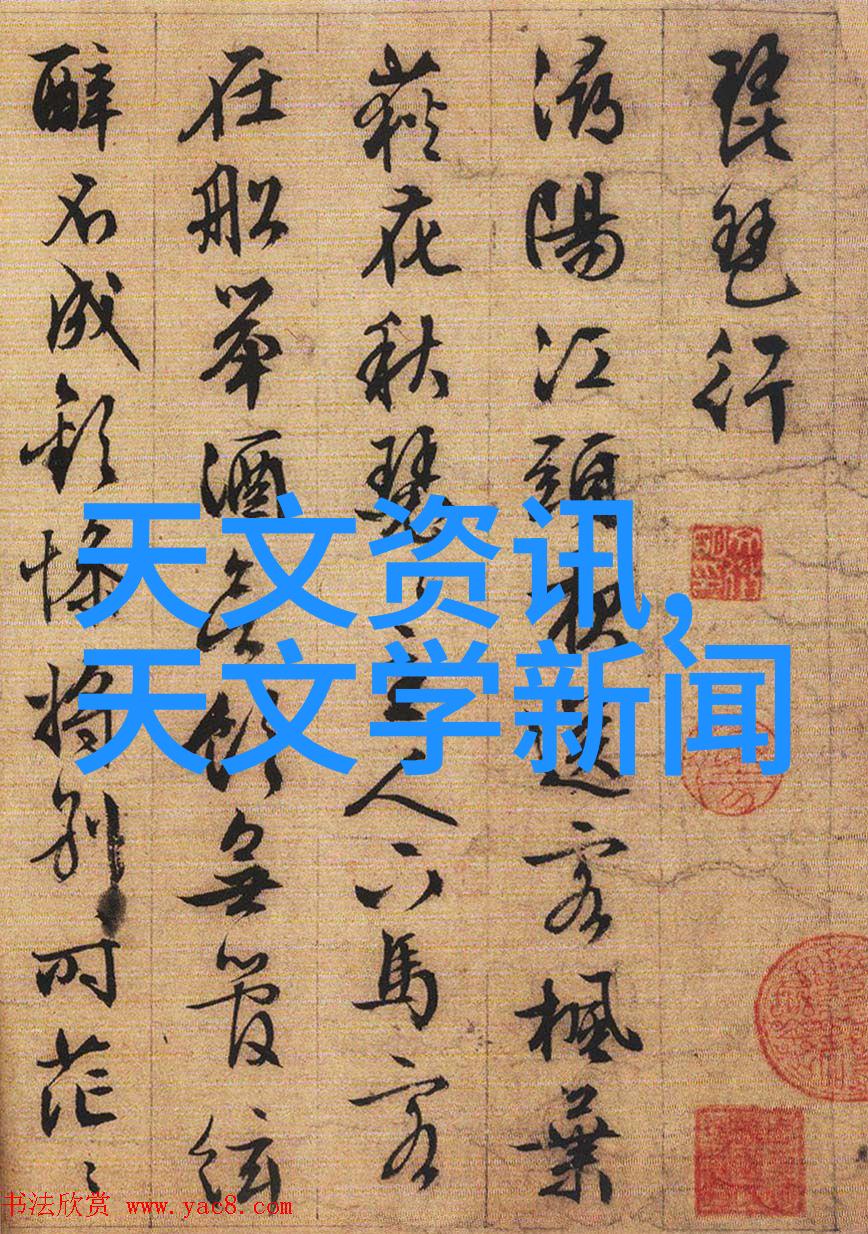 琵琶行
潯陽江頭夜送客楓葉
荻花秋瑟〻主人下馬客
在船舉酒欲飲無管絃
醉不成歡慘將別〻時茫〻
天文资讯,
天文学新闻
书法欣赏 www.yac8.com